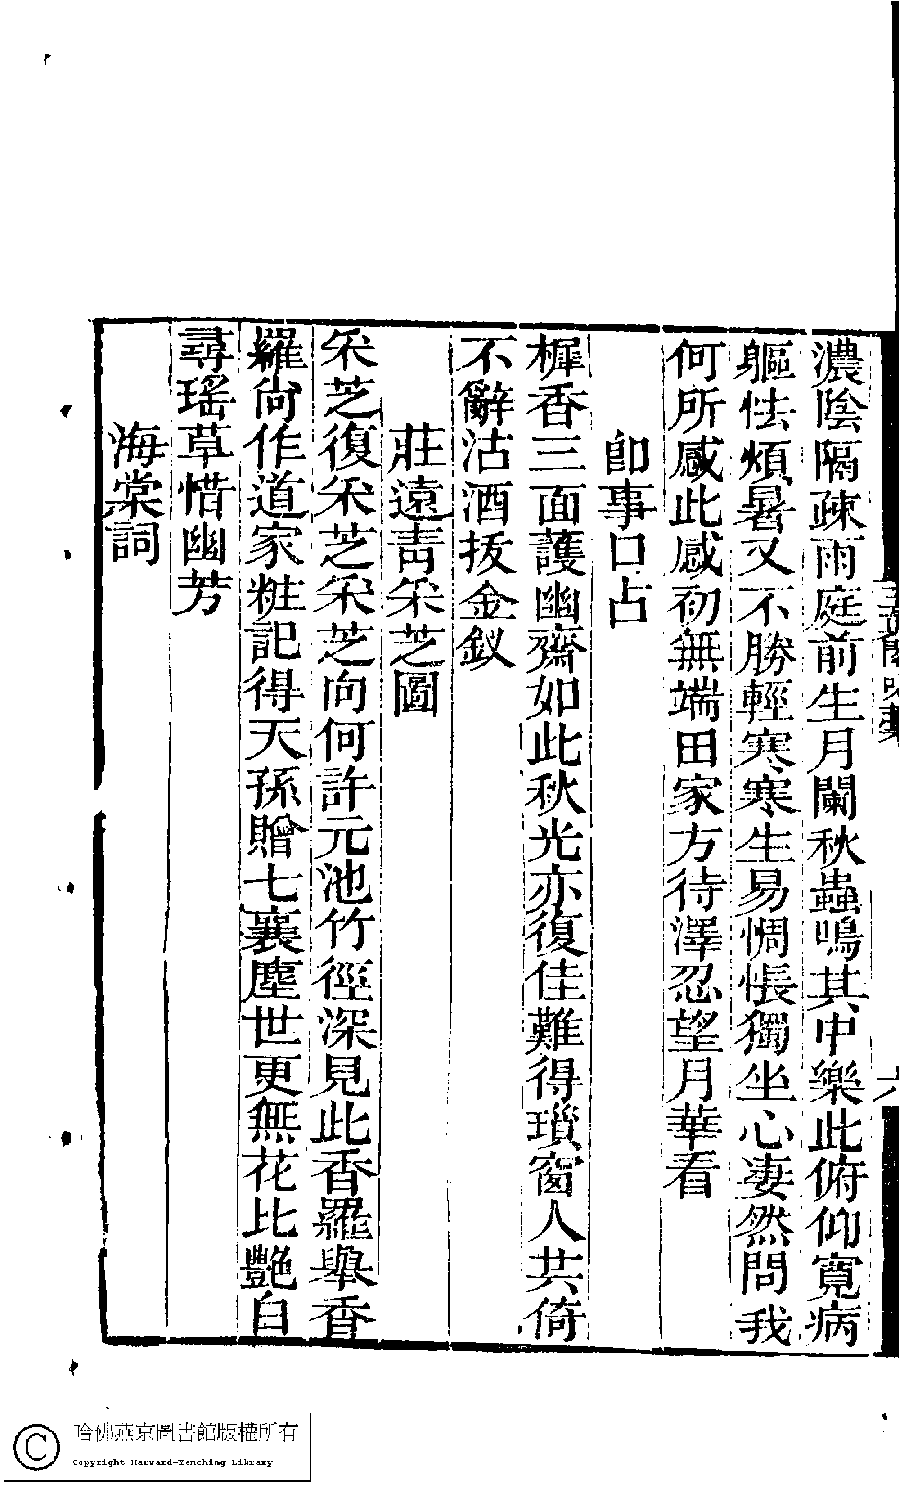 濃陰隔疎雨庭前生月闌秋蟲鳴其中樂此俯仰寬病
軀怯煩暑又不勝輕寒寒生易惆悵獨坐心淒然問我
何所感此感初無端田家方待澤忍望月華看
卽事口占
樨香三面護幽齋如此秋光亦復佳難得瑣窗人共倚
不辭沽酒拔金釵
莊遠靑采芝圖
采芝復采芝采芝向何許元池竹徑深見此香羅舉香
羅尙作道家粧記得天孫贈七襄塵世更無花比艷自
尋瑤草惜幽芳
海棠詞
六
哈佛燕京圖書館版權所有
Copyright Harvard-Yenching Library